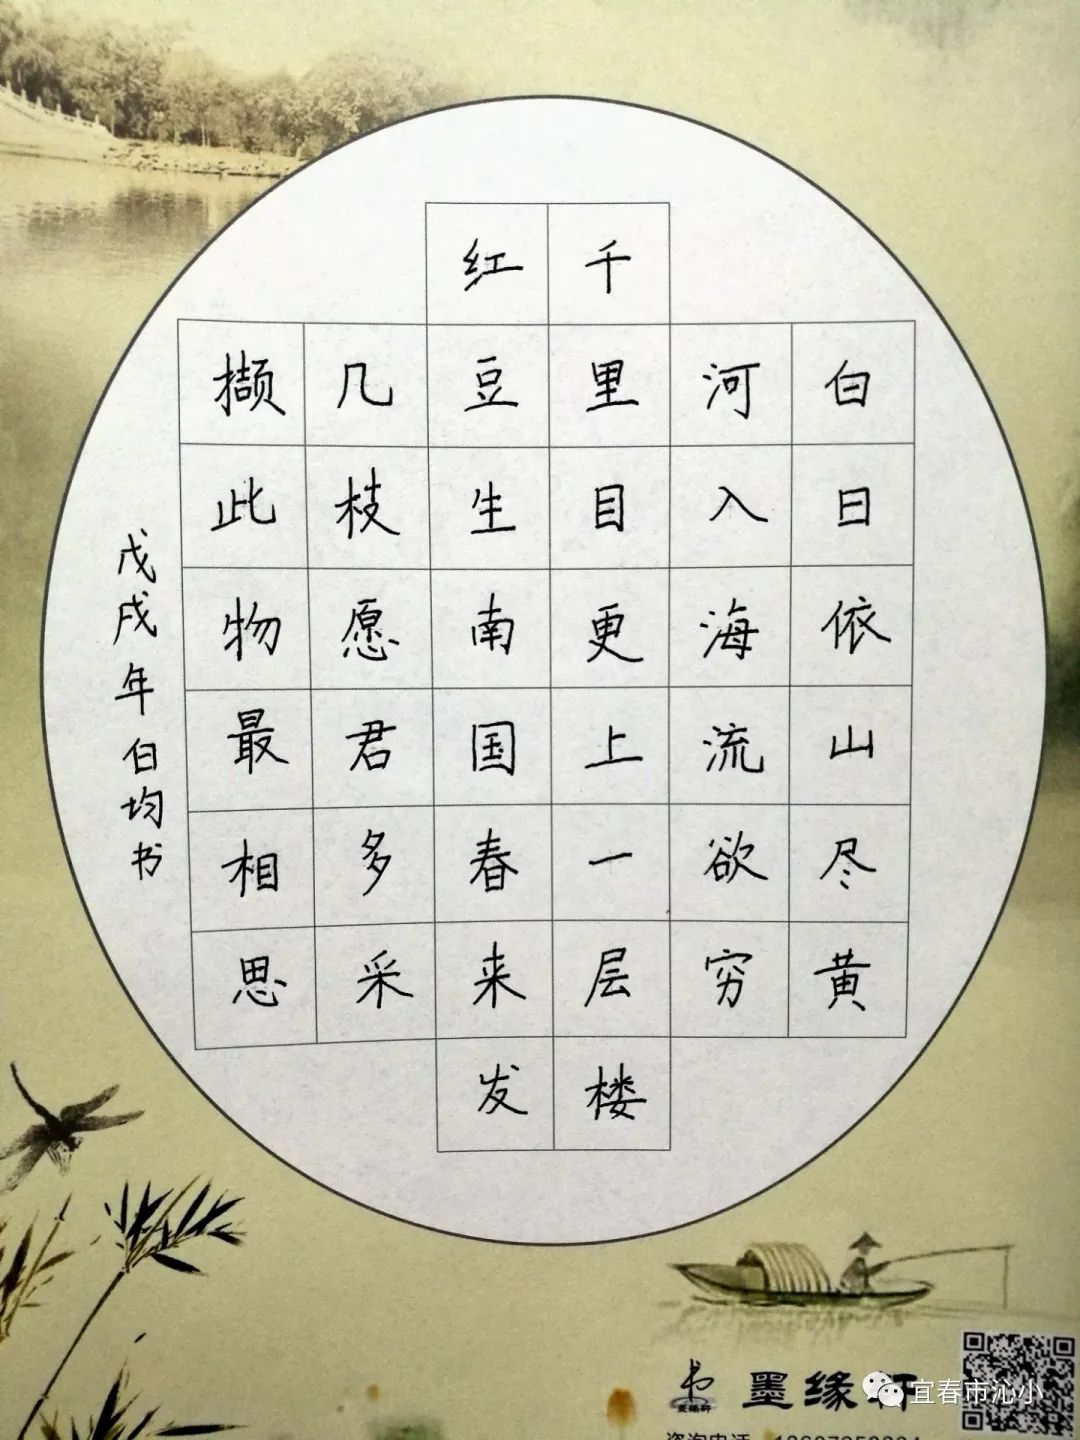 白日依山尽黄
河入海流欲穷
千里目更上一层楼
红豆生南国春来发
几枝愿君多采
撷此物最相思
戊戌年白均书
墨缘轩
宜春市沁小